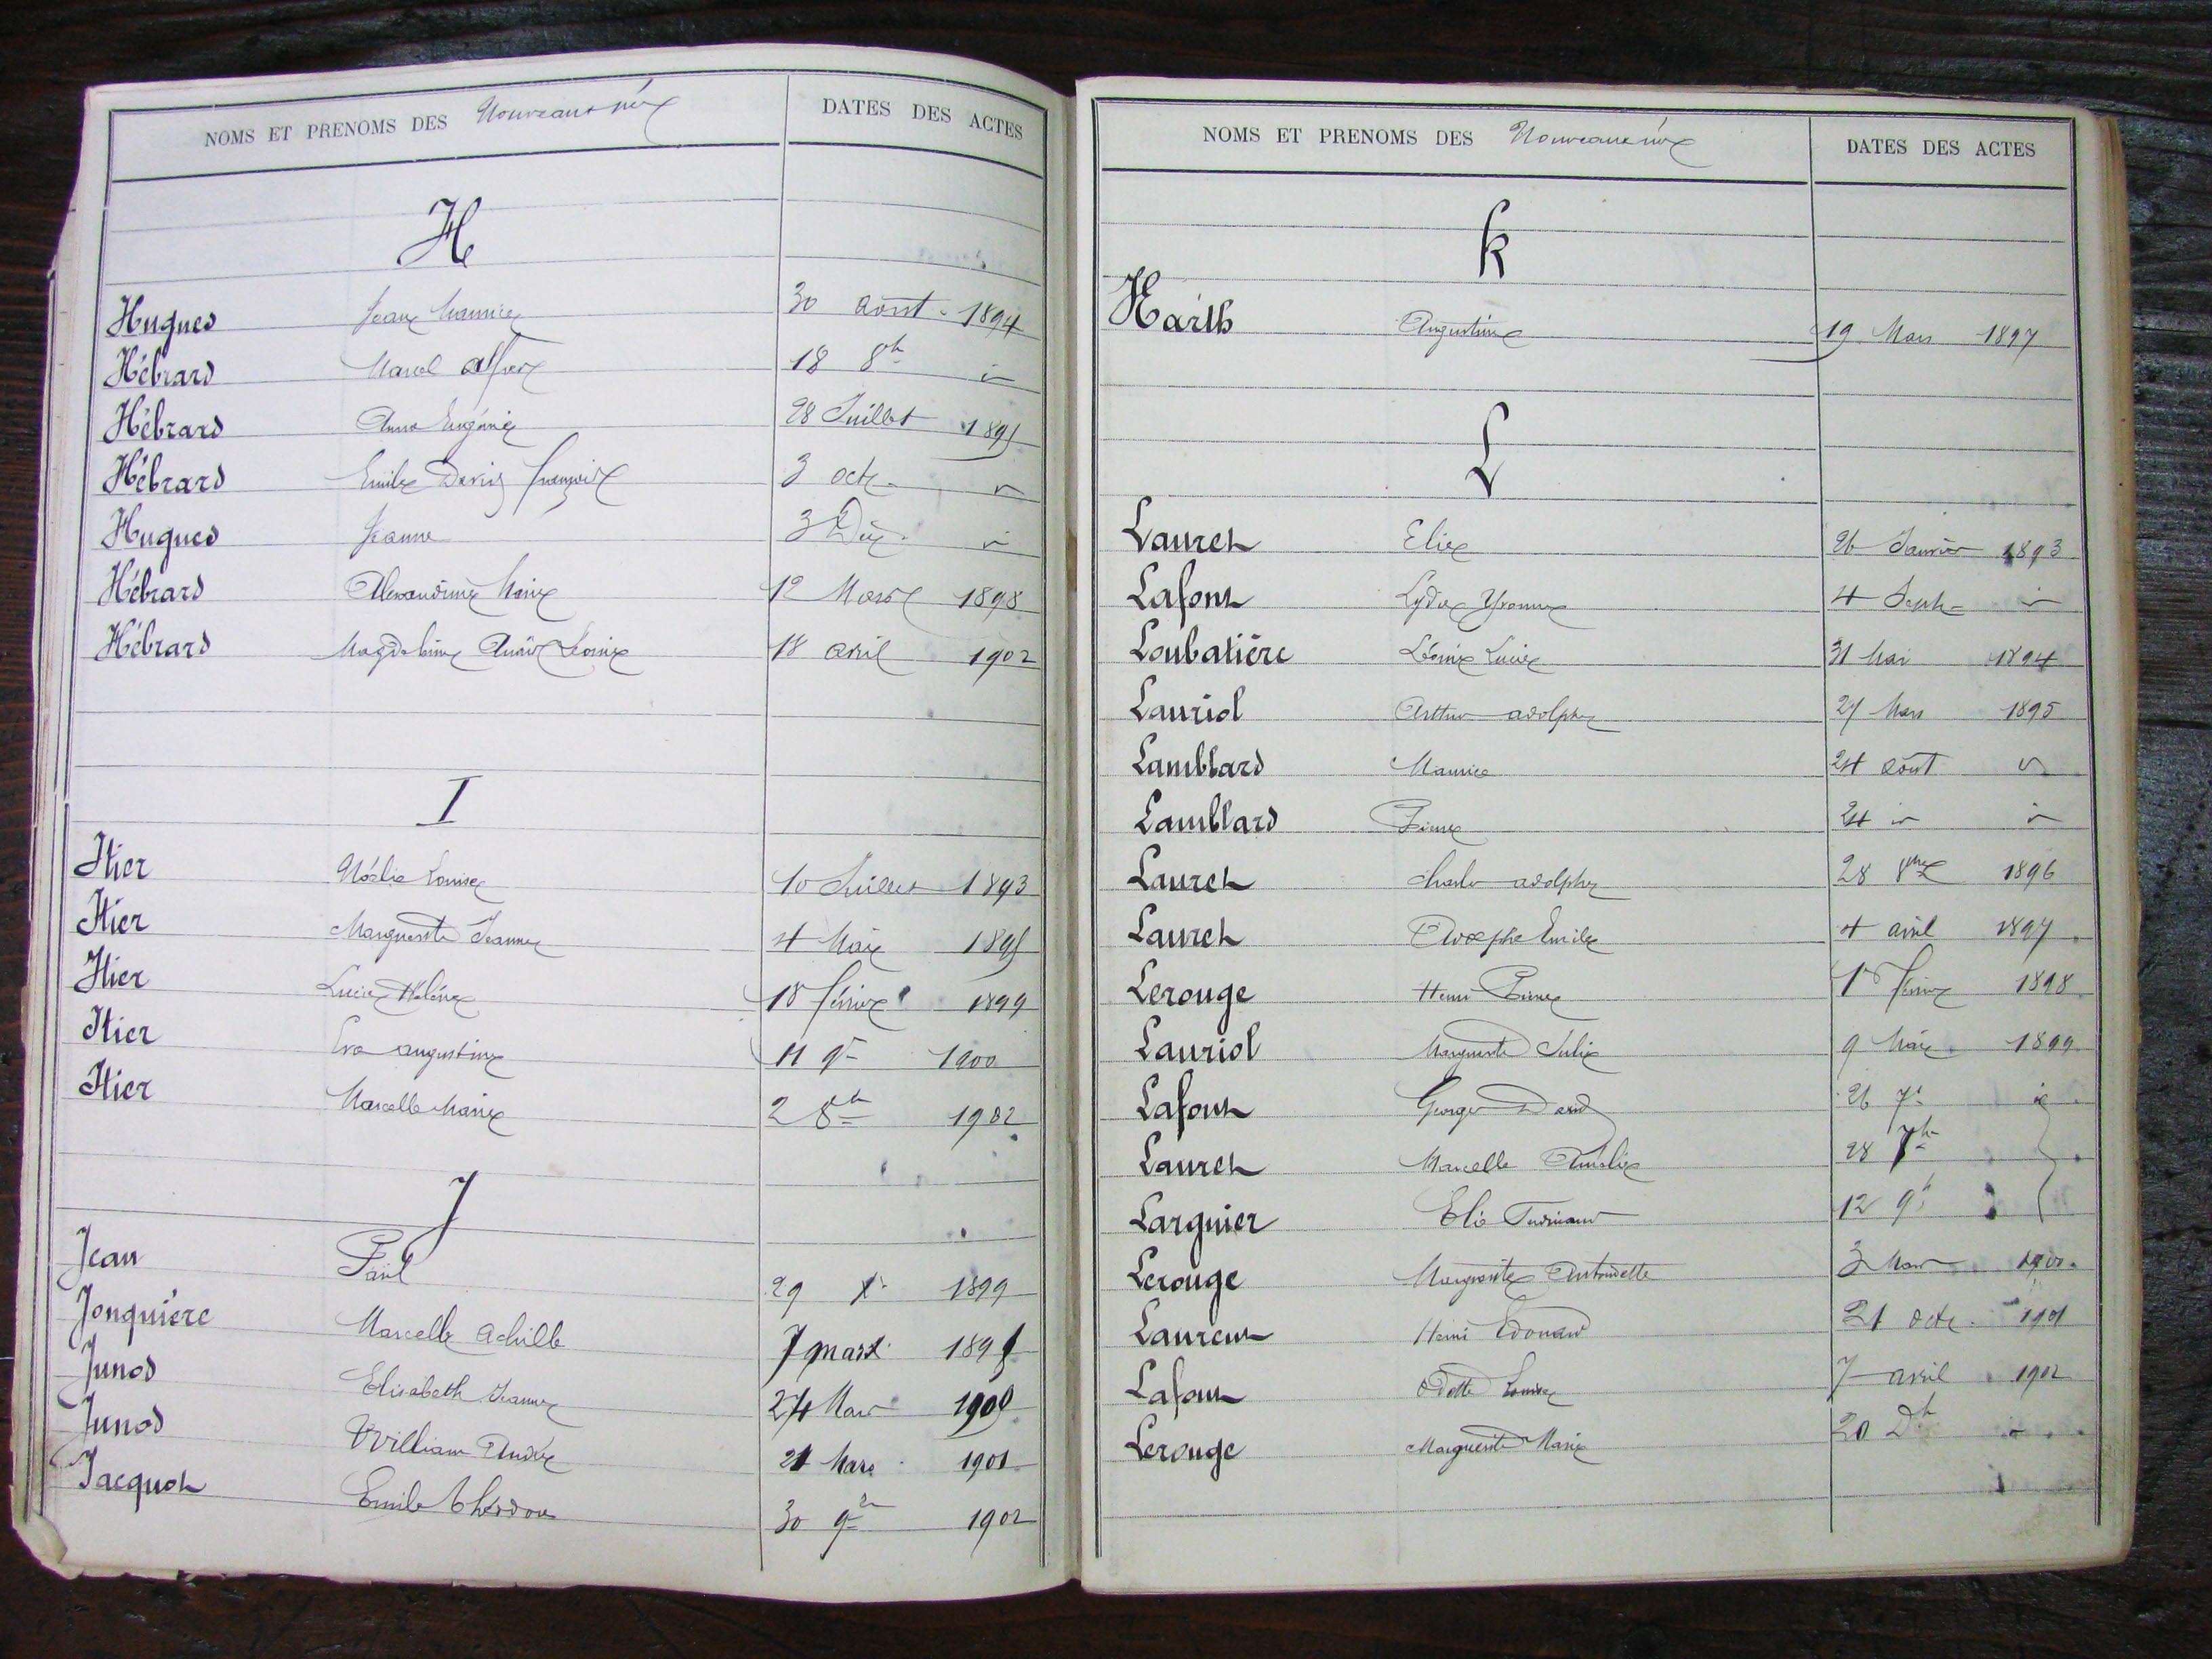 NOMS ET PRENOMS DES Nouveaux nés DATES DES ACTES
H
Hugues Jean Maurice 30 août 1894
Hébrard Marcel Alfred 18 8b id
Hébrard Anna Eugénie 28 Juillet 1895
Hébrard Emile François 3 octe id
Hugues Jeanne 3 id
Hébrard Alexandrine Marie 12 Mars 1898
Hébrard Magdeleine Louise 18 avril 1902
I
Itier Noélie Louise 10 Juillet 1893
Itier Marguerite Jeanne 4 Mai 1895
Itier Lucie Hélène 18 février 1899
Itier Eva Augustine 11 9b 1900
Itier Marcelle Marie 2 8b 1902
J
Jean Paul 29 Xb 1899
Jonquière Marcelle Achille 7 mars 189
Junod Elisabeth Jeanne 24 Mars 1900
Junod William André 21 Mars 1901
Jacquot Emile 30 9b 1902
NOMS ET PRENOMS DES Nouveaux nés DATES DES ACTES
K
Harth Augustine 19 Mars 1897
L
Lauret Elie 26 Janvier 1893
Lafont Lydie Yvonne 4 Septe id
Loubatière Léonie Lucie 31 Mai 1894
Lauriol Arthur Adolphe 27 Mars 1895
Lamblard Maurice 24 août id
Lamblard Pierre 24 id id
Lauret Charles Adolphe 28 8bre 1896
Lauret Adolphe Emile 4 avril 1897
Lerouge Henri Pierre 1er février 1898
Lauriol Marguerite Julie 9 Mai 1899
Lafont Georges David 26 7b id
Lauret Marcelle Amélie 28 7b
Larguier Elie Ferdinand 12 9b
Lerouge Marguerite Antoinette 3 Mars 1900
Laurent Henri Edouard 21 octe 1901
Lafont Odette Louise 7 avril 1902
Lerouge Marguerite Marie 20 Db id